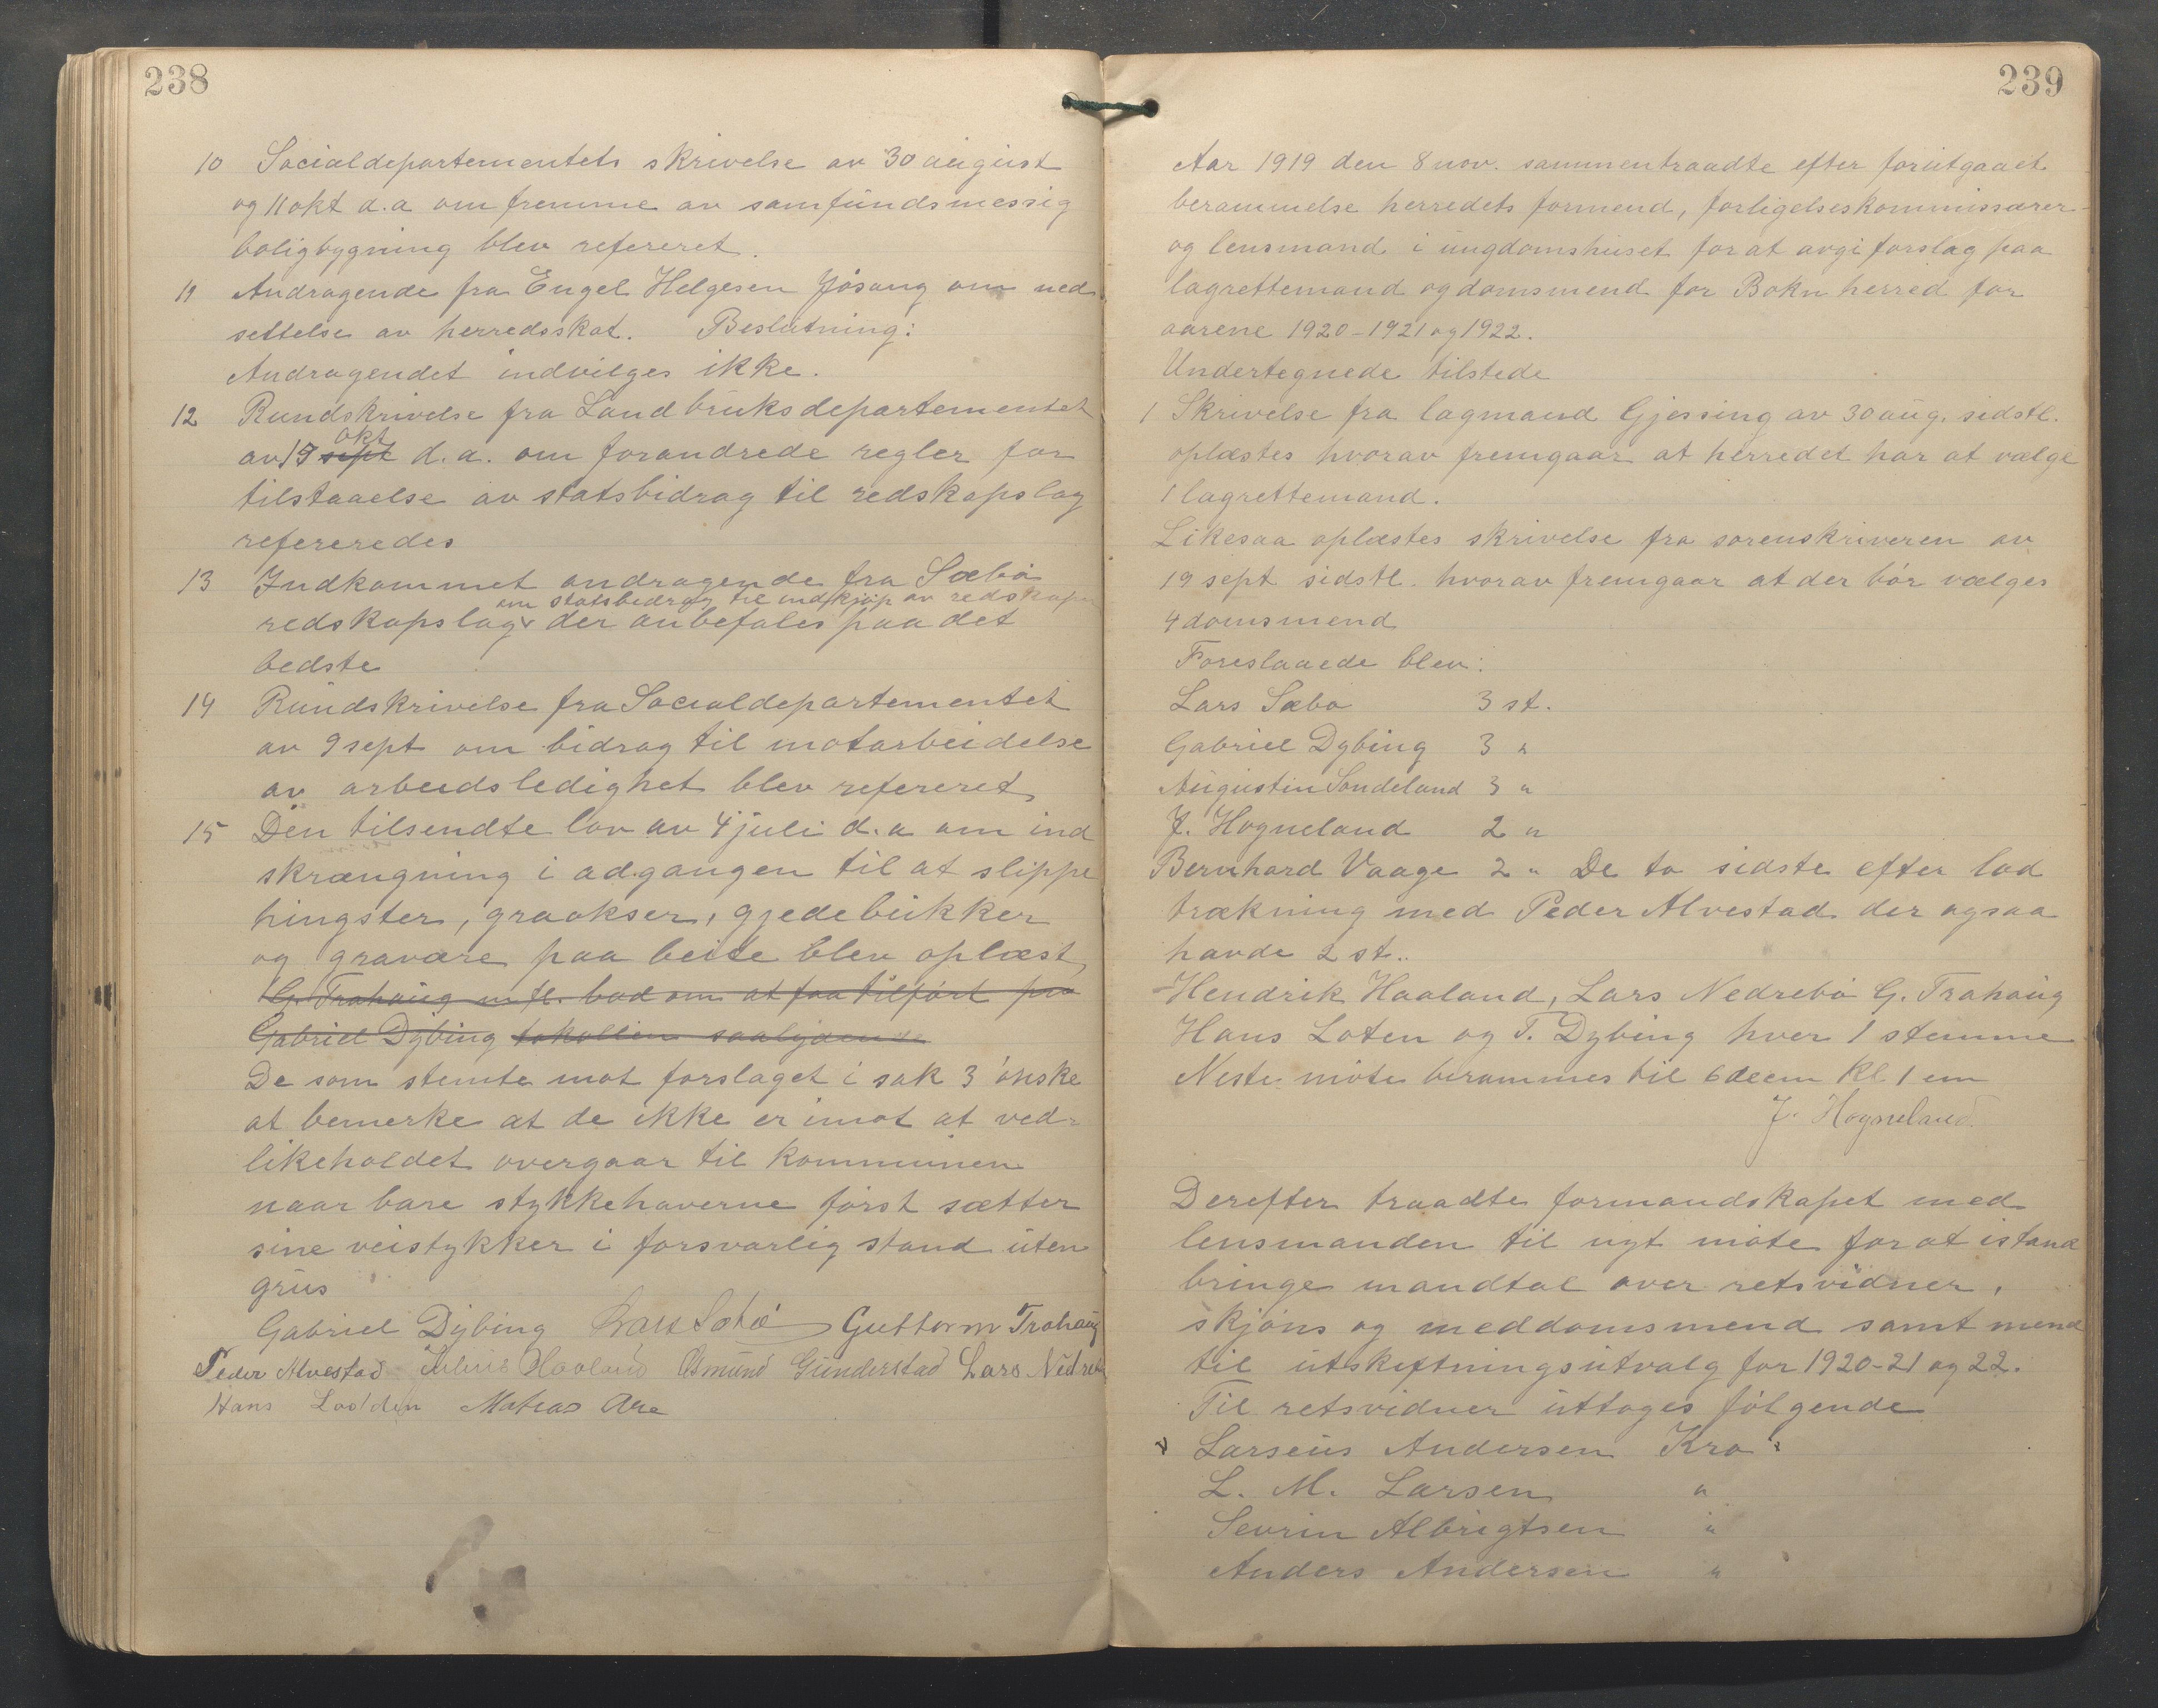 238
10 Socialdepartementets skrivelse av 30 august
og 11 okt d.a om fremme av samfundsmessig
boligbygning blev refereret.
11 Andragende fra Engel Helgesen Jøsang om ned
settelse av herredsskat. Beslutning:
Andragendet indvilges ikke.
12 Rundskrivelse fra Landbruksdepartementet
okt
av 19 sept d.a. om forandrede regler for
tilstaaelse av statsbidrag til redskapslag
refereredes
13 Indkommet andragende fra Sæbø
om statsbidrag til indkjøp av redskaper
redskapslag der anbefales paa det
bedste
14 Rundskrivelse fra Socialdepartementet
av 9 sept om bidrag til motarbeidelse
av arbeidsledighet blev refereret
15 Den tilsendte lov av 4 juli d.a om ind
skrængning i adgangen til at slippe
hingster, graokser, gjedebukker
og gravære paa beite blev oplæst
G. Trohaug m fl. bad om at faa tilført pro
Gabriel Dybing tokollen saalydende
De som stemte mot forslaget i sak 3 ønske
at bemerke at de ikke er imot at ved-
likeholdet overgaar til kommunen
naar bare stykkehaverne først sætter
sine veistykker i forsvarlig stand uten
grus
Gabriel Dybing Lars Sæbø Guttorm Trohaug
Peder Alvestad Julius Haaland Osmund Gunderstad Lars Nedrebø
Hans Lodden Matias Are
239
Aar 1919 den 8 nov. sammentraadte efter forutgaaet
berammelse herredets formend, forligelseskommissærer
og lensmand i ungdomshuset for at avgi forslag paa
lagrettemand og domsmend for Bokn herred for
aarene 1920-1921 og 1922.
Undertegnede tilstede
1 Skrivelse fra lagmand Gjessing av 30 aug. sidstl.
oplæstes hvorav fremgaar at herredet har at vælge
1 lagrettemand.
Likesaa oplæstes skrivelse fra sorenskriveren av
19 sept sidstl. hvorav fremgaar at der bør vælges
4 domsmend
Foreslaaede blev:
Lars Sæbø 3 st.
Gabriel Dybing 3 "
Augustin Sondeland 3 "
J. Hogneland 2 "
Bernhard Vaage 2 " De to sidste efter lod
trækning med Peder Alvestad der ogsaa
havde 2 st..
Hendrik Haaland, Lars Nedrebø G. Trohaug
Hans Loten og T. Dybing hver 1 stemme
Neste møte berammes til 6 decem kl. 1 em
J. Hogneland
Derefter traadte formandskapet med
lensmanden til nyt møte for at istand
bringe mandtal over retsvidner,
skjøns og meddomsmend samt mend
til utskiftningsutvalg for 1920-21 og 22.
Til retsvidner uttoges følgende
Larseus Andersen Kro
L. M. Larsen "
Sevrin Albrigtsen "
Anders Andersen "